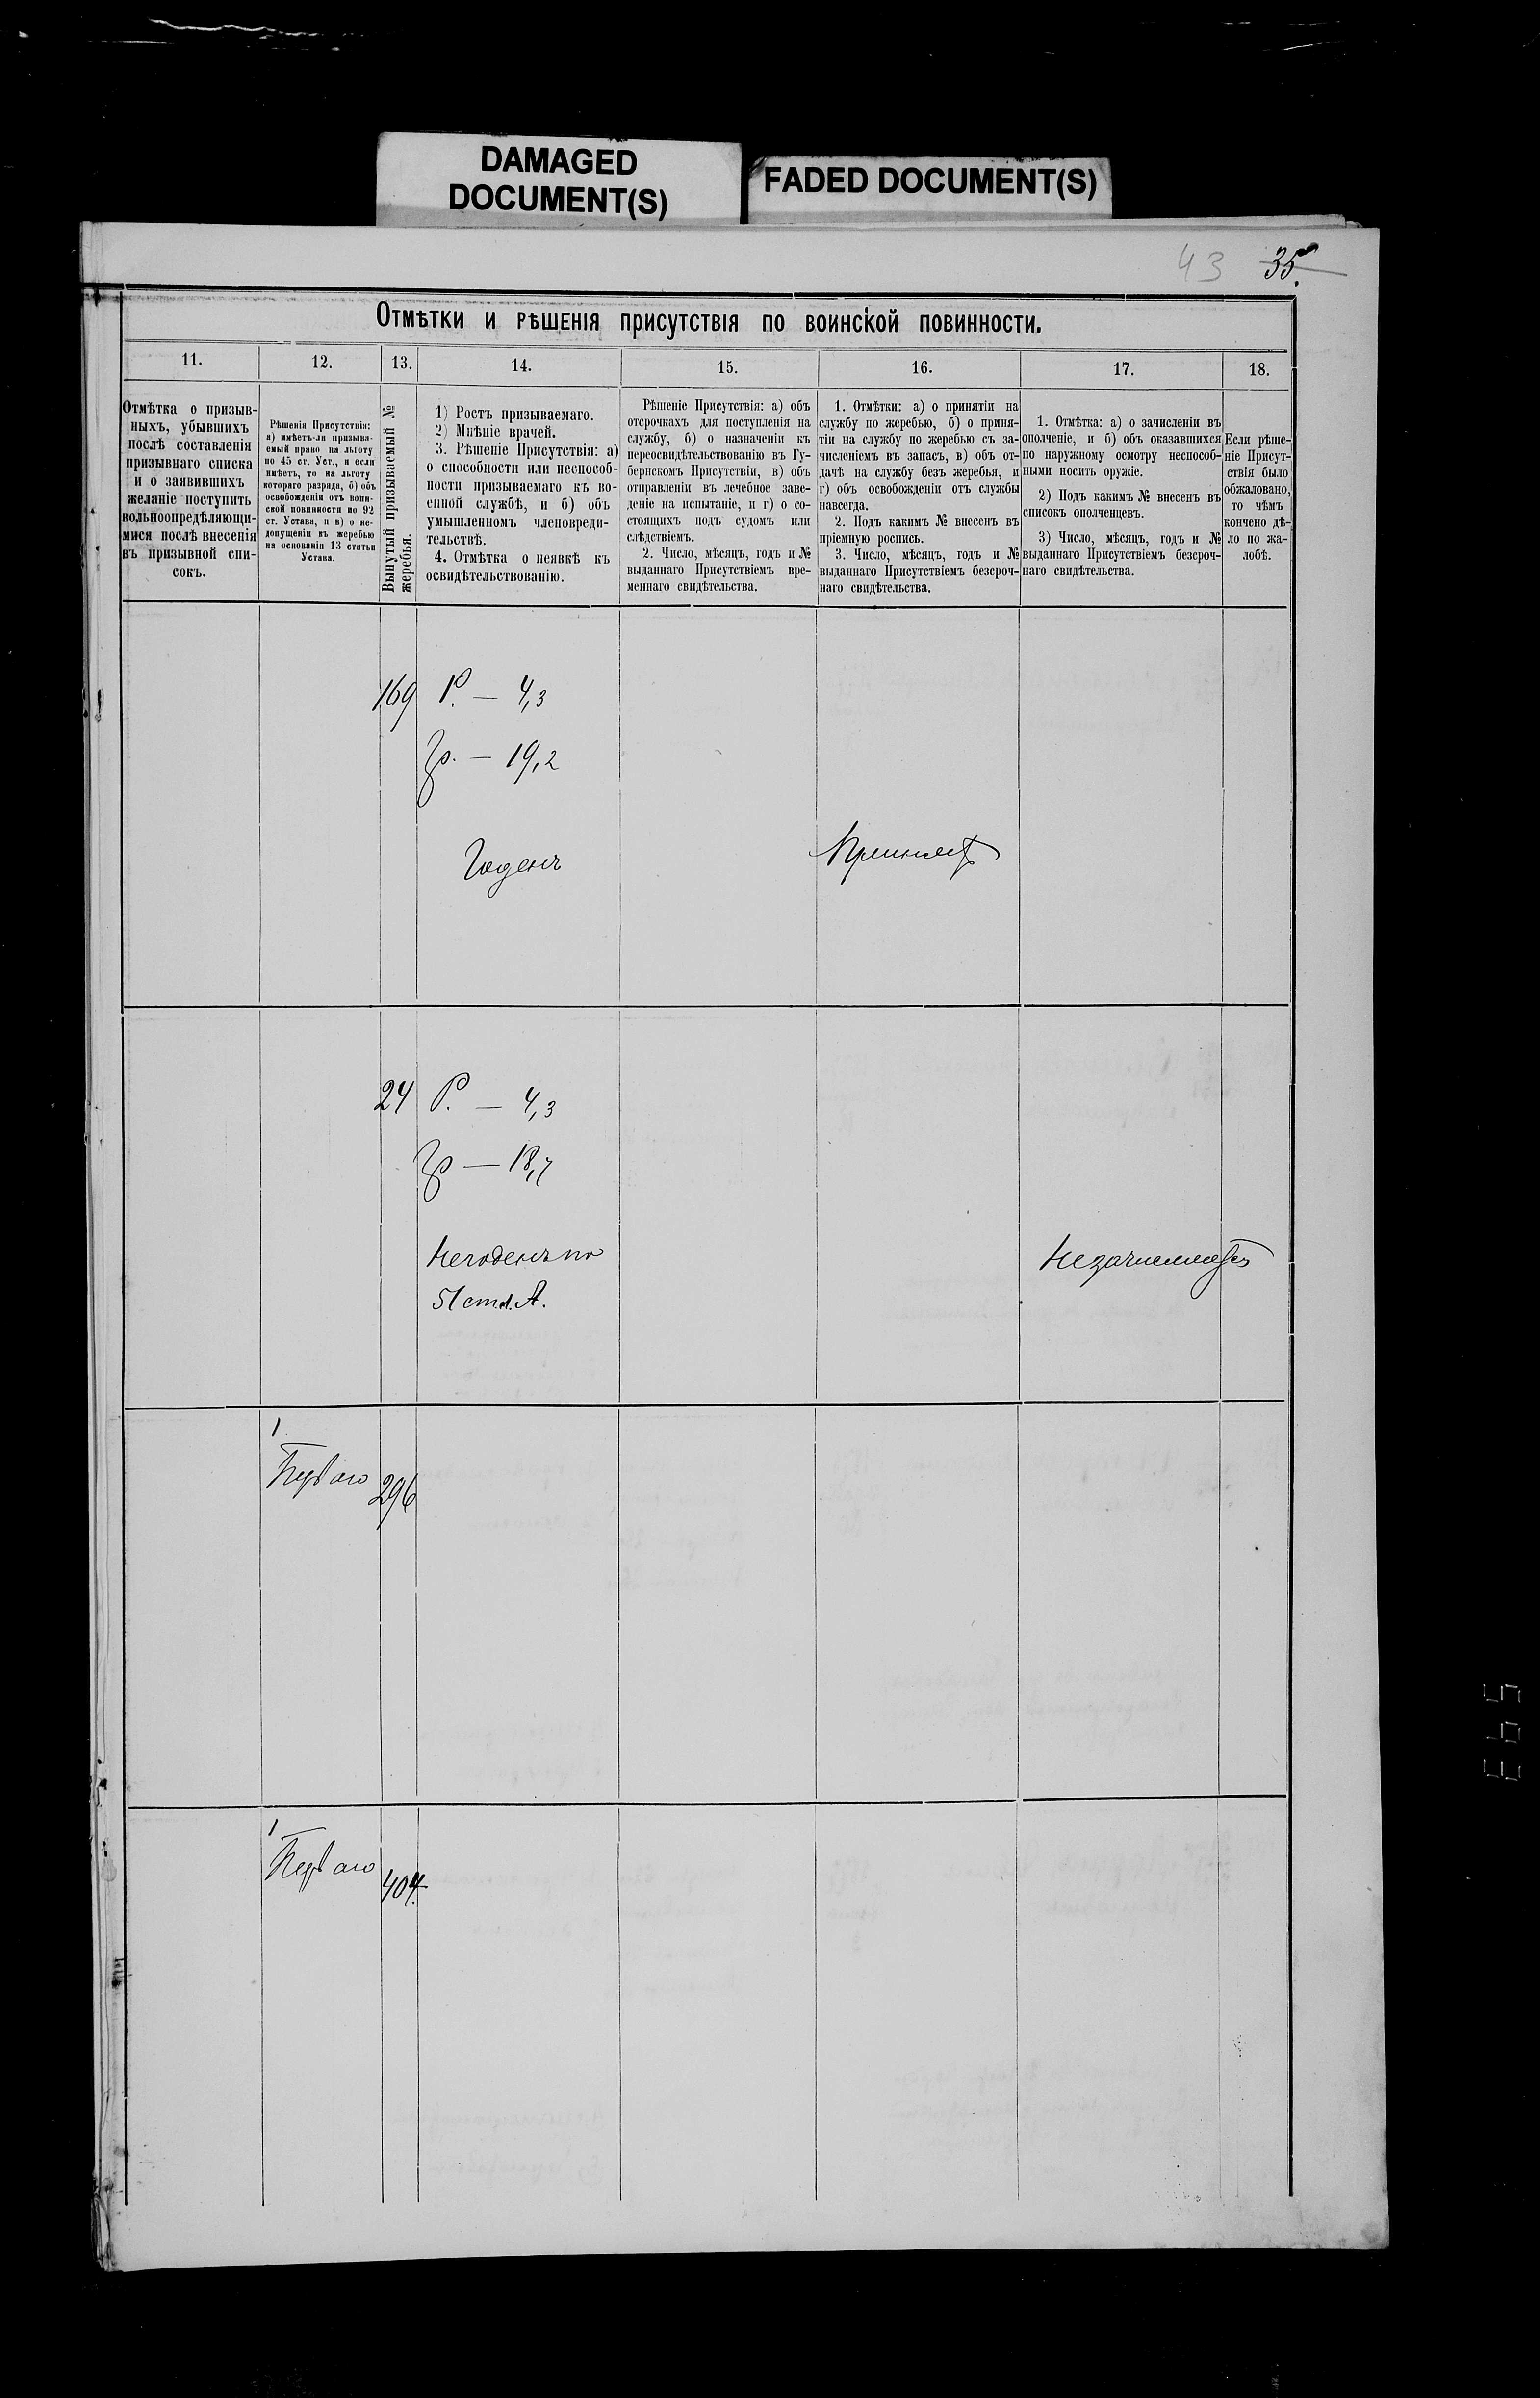 DAMAGED
DOCUMENT(S)
FADED DOCUMENT(S)
43 35.
Отмѣтки и рѣшенія присутствія по воинской повинности.
11.
12.
13.
14.
15.
16.
17.
18.
Отмѣтка о призыв-
ныхъ, убывшихъ
послѣ составленія
призывнаго списка
и о заявившихъ
желаніе поступить
вольноопредѣляющи-
мися послѣ внесенія
въ призывной спи-
сокъ.
Рѣшенія Присутствія:
а) имѣетъ-ли призыва-
емый право на льготу
по 45 ст. Уст., и если
имѣетъ, то на льготу
котораго разряда, б) объ
освобожденіи отъ воин-
ской повинности по 92
ст. Устава, и в) о не-
допущеніи къ жеребью
на основаніи 13 статьи
Устава.
Вынутый призываемый №
жеребья.
1) Ростъ призываемаго.
2) Мнѣніе врачей.
3. Рѣшеніе Присутствія: а)
о способности или неспособ-
ности призываемаго къ во-
енной службѣ, и б) объ
умышленномъ членовреди-
тельствѣ.
4. Отмѣтка о неявкѣ къ
освидѣтельствованію.
Рѣшеніе Присутствія: а) объ
отсрочкахъ для поступленія на
службу, б) о назначеніи къ
переосвидѣтельствованію въ Гу-
бернскомъ Присутствіи, в) объ
отправленіи въ лечебное заве-
деніе на испытаніе, и г) о со-
стоящихъ подъ судомъ или
слѣдствіемъ.
2. Число, мѣсяцъ, годъ и №
выданнаго Присутствіемъ вре-
меннаго свидѣтельства.
1. Отмѣтки: а) о принятіи на
службу по жеребью, б) о приня-
тіи на службу по жеребью съ за-
численіемъ въ запасъ, в) объ от-
дачѣ на службу безъ жеребья, и
г) объ освобожденіи отъ службы
навсегда.
2. Подъ какимъ № внесенъ въ
пріемную роспись.
3. Число, мѣсяцъ, годъ и №
выданнаго Присутствіемъ безсроч-
наго свидѣтельства.
1. Отмѣтка: а) о зачисленіи въ
ополченіе, и б) объ оказавшихся
по наружному осмотру неспособ-
ными носить оружіе.
2) Подъ какимъ № внесенъ въ
списокъ ополченцевъ.
3) Число, мѣсяцъ, годъ и №
выданнаго Присутствіемъ безсроч-
наго свидѣтельства.
Если рѣше-
ніе Присут-
ствія было
обжаловано,
то чѣмъ
кончено дѣ-
ло по жа-
лобѣ.
169 Р. — 4,3
Гр. — 19,2
Годенъ
Принятъ
24 Р. — 4,3
Гр — 18,7
Негоденъ по
51 ст. л. А.
Незачисляется
1
Перваго 296
1
Перваго 404.
593